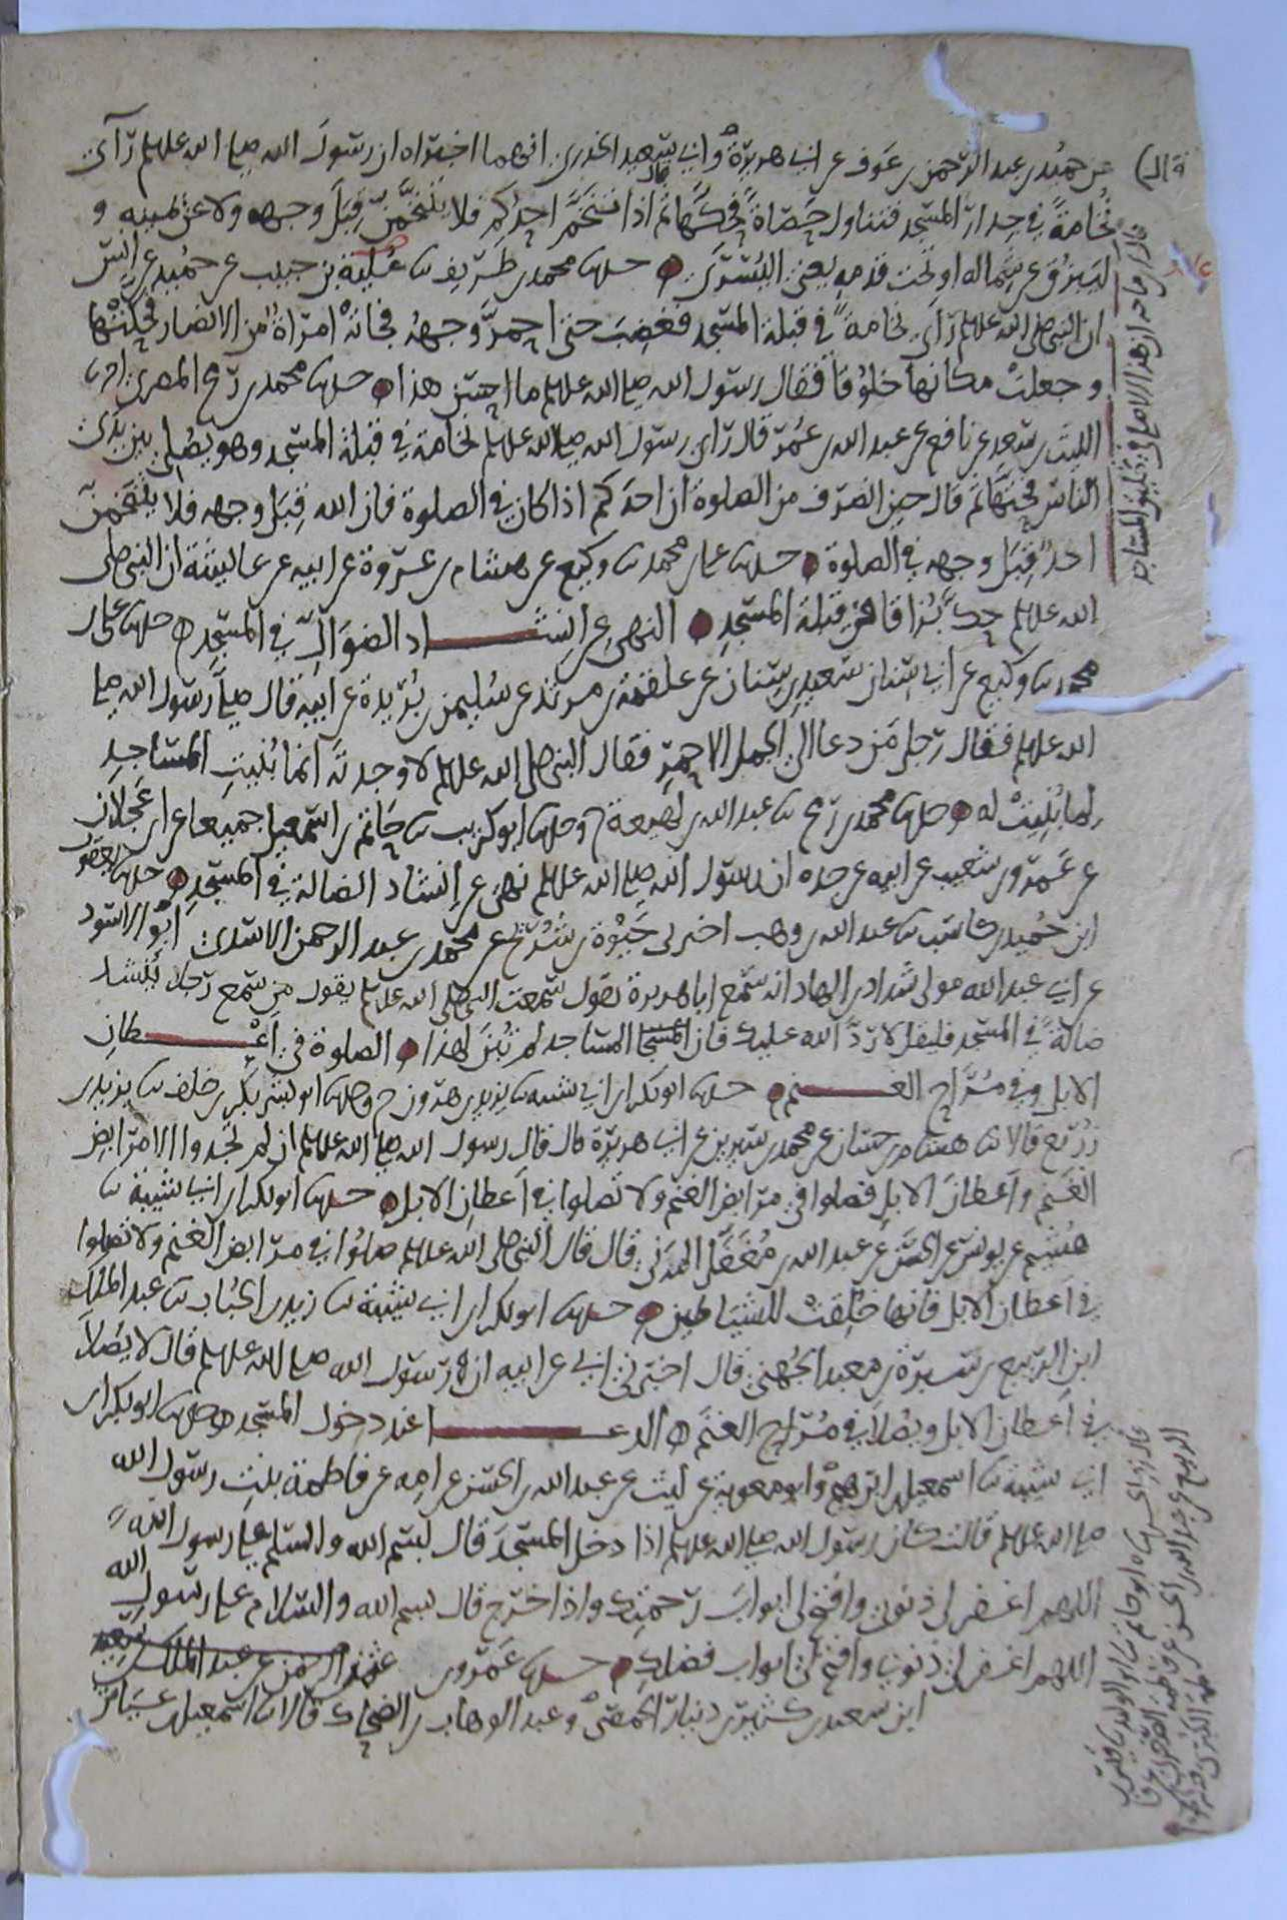 عن حميد بن عبد الرحمن بن عوف عن ابي هريرة وابي سعيد الخدري انهما اخبراه ان رسول الله صلى الله عليه وسلم رآى
نخامةً في جدار المسجد فتناول حصاةً فحكّها ثم قال اذا تنخّم احدكم فلا يتنخّمن قبل وجهه ولا عن يمينه و
ليبزق عن شماله او تحت قدمه يعني اليسرى حدثنا محمد بن طريف نا عائذ بن حبيب عن حميد عن انس
ان النبي صلى الله عليه وسلم رآى نخامةً في قبلة المسجد فغضب حتى احمرّ وجهه فجاتْه امراة من الانصار فحكتْها
وجعلتْ مكانها خلوقا فقال رسول الله صلى الله عليه وسلم ما احسن هذا حدثنا محمد بن رمح المصري انا
الليث بن سعد عن نافع عن عبد الله بن عمر قال رآى رسول الله صلى الله عليه وسلم نخامة في قبلة المسجد وهو يصلي بين يدي
الناس فحتها ثم قال حين انصرف من الصلوة ان احدكم اذا كان في الصلوة فان الله قبل وجهه فلا يتنخمن
احدٌ قبل وجهه في الصلوة حدثنا علي بن محمد نا وكيع عن هشام بن عروة عن ابيه عن عائشة ان النبي صلى
الله عليه وسلم حكّ بُزاقا في قبلة المسجد النهي عن انشاد الضوالّ في المسجد حدثنا علي بن
محمد نا وكيع عن ابي سنان سعيد بن سنان عن علقمة بن مرثد عن سليمن بن بُريدة عن ابيه قال صلّى رسول الله صلى
الله عليه وسلم فقال رجل من دعا الى الجمل الاحمر فقال النبي صلى الله عليه وسلم لا وجدته انما بُنيت المساجد
لما بُنيتْ له حدثنا محمد بن رمح نا عبد الله بن لهيعة ح وحدثنا ابو كريب نا حاتم بن اسمعيل جميعا عن ابن عجلان
عن عمرو بن شعيب عن ابيه عن جده ان رسول الله صلى الله عليه وسلم نهى عن إنشاد الضالة في المسجد حدثنا يعقوب
ابن حُميد بن كاسب نا عبد الله بن وهب اخبرني حيوة بن شُريح عن محمد بن عبد الرحمن الاسدي ابو الاسود
عن ابي عبد الله مولى شداد بن الهاد انه سمع ابا هريرة يقول سمعت النبي صلى الله عليه وسلم يقول من سمع رجلا يُنشد
ضالةً في المسجد فليقل لا ردّ الله عليك فان المساجد لم تُبن لهذا الصلوة في اعطان
الابل وفي مُراح الغنم حدثنا ابو بكر ابن ابي شيبة نا يزيد بن هرون ح وحدثنا ابو بشر بكر بن خلف نا يزيد بن
زُريع قالا نا هشام بن حسان عن محمد بن سيرين عن ابي هريرة قال قال رسول الله صلى الله عليه وسلم ان لم تجدوا الا مرابض
الغنم وأعطان الابل فصلوا في مرابض الغنم ولا تصلوا في أعطان الابل حدثنا ابو بكر ابن ابي شيبة نا
هُشيم عن يونس عن الحسن عن عبد الله بن مُغفّل المزني قال قال النبي صلى الله عليه وسلم صلوا في مرابض الغنم ولا تصلوا
في أعطان الابل فانها خُلقتْ للشياطين حدثنا ابو بكر ابن ابي شيبة نا زيد بن الحُباب نا عبد الملك
ابن الربيع بن سَبرة بن معبد الجُهني قال اخبرني ابي عن ابيه ان رسول الله صلى الله عليه وسلم قال لا يُصلا
في أعطان الابل ويُصلا في مُراح الغنم الدعا عند دخول المسجد حدثنا ابو بكر ابن
ابي شيبة نا اسمعيل بن ابرهيم وابو معوية عن ليث عن عبد الله بن الحسن عن امه عن فاطمة بنت رسول الله
صلى الله عليه وسلم قالت كان رسول الله صلى الله عليه وسلم اذا دخل المسجد قال بسم الله والسلم على رسول الله
اللهم اغفر لي ذنوبي وافتح لي ابواب رحمتك واذا خرج قال بسم الله والسلام على رسول الله
اللهم اغفر لي ذنوبي وافتح لي ابواب فضلك حدثنا عمرو بن عثمن
ابن سعيد بن كثير بن دينار الحمصي وعبد الوهاب بن الضحاك قالا نا اسمعيل بن عياش